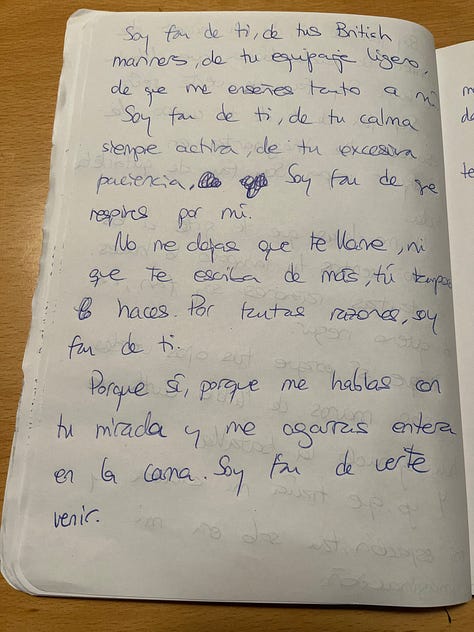 Soy fan de ti, de tus British
manners, de tu equipaje ligero,
de que me enseñes tanto a mí.
Soy fan de ti, de tu calma
siempre activa, de tu excesiva
paciencia, Soy fan de que
respires por mí.
No me dejas que te llame, ni
que te escriba de más, tú tampoco
lo haces. Por tantas razones, soy
fan de ti.
Porque sí, porque me hablas con
tu mirada y me agarras entera
en la cama. Soy fan de verte
venir.